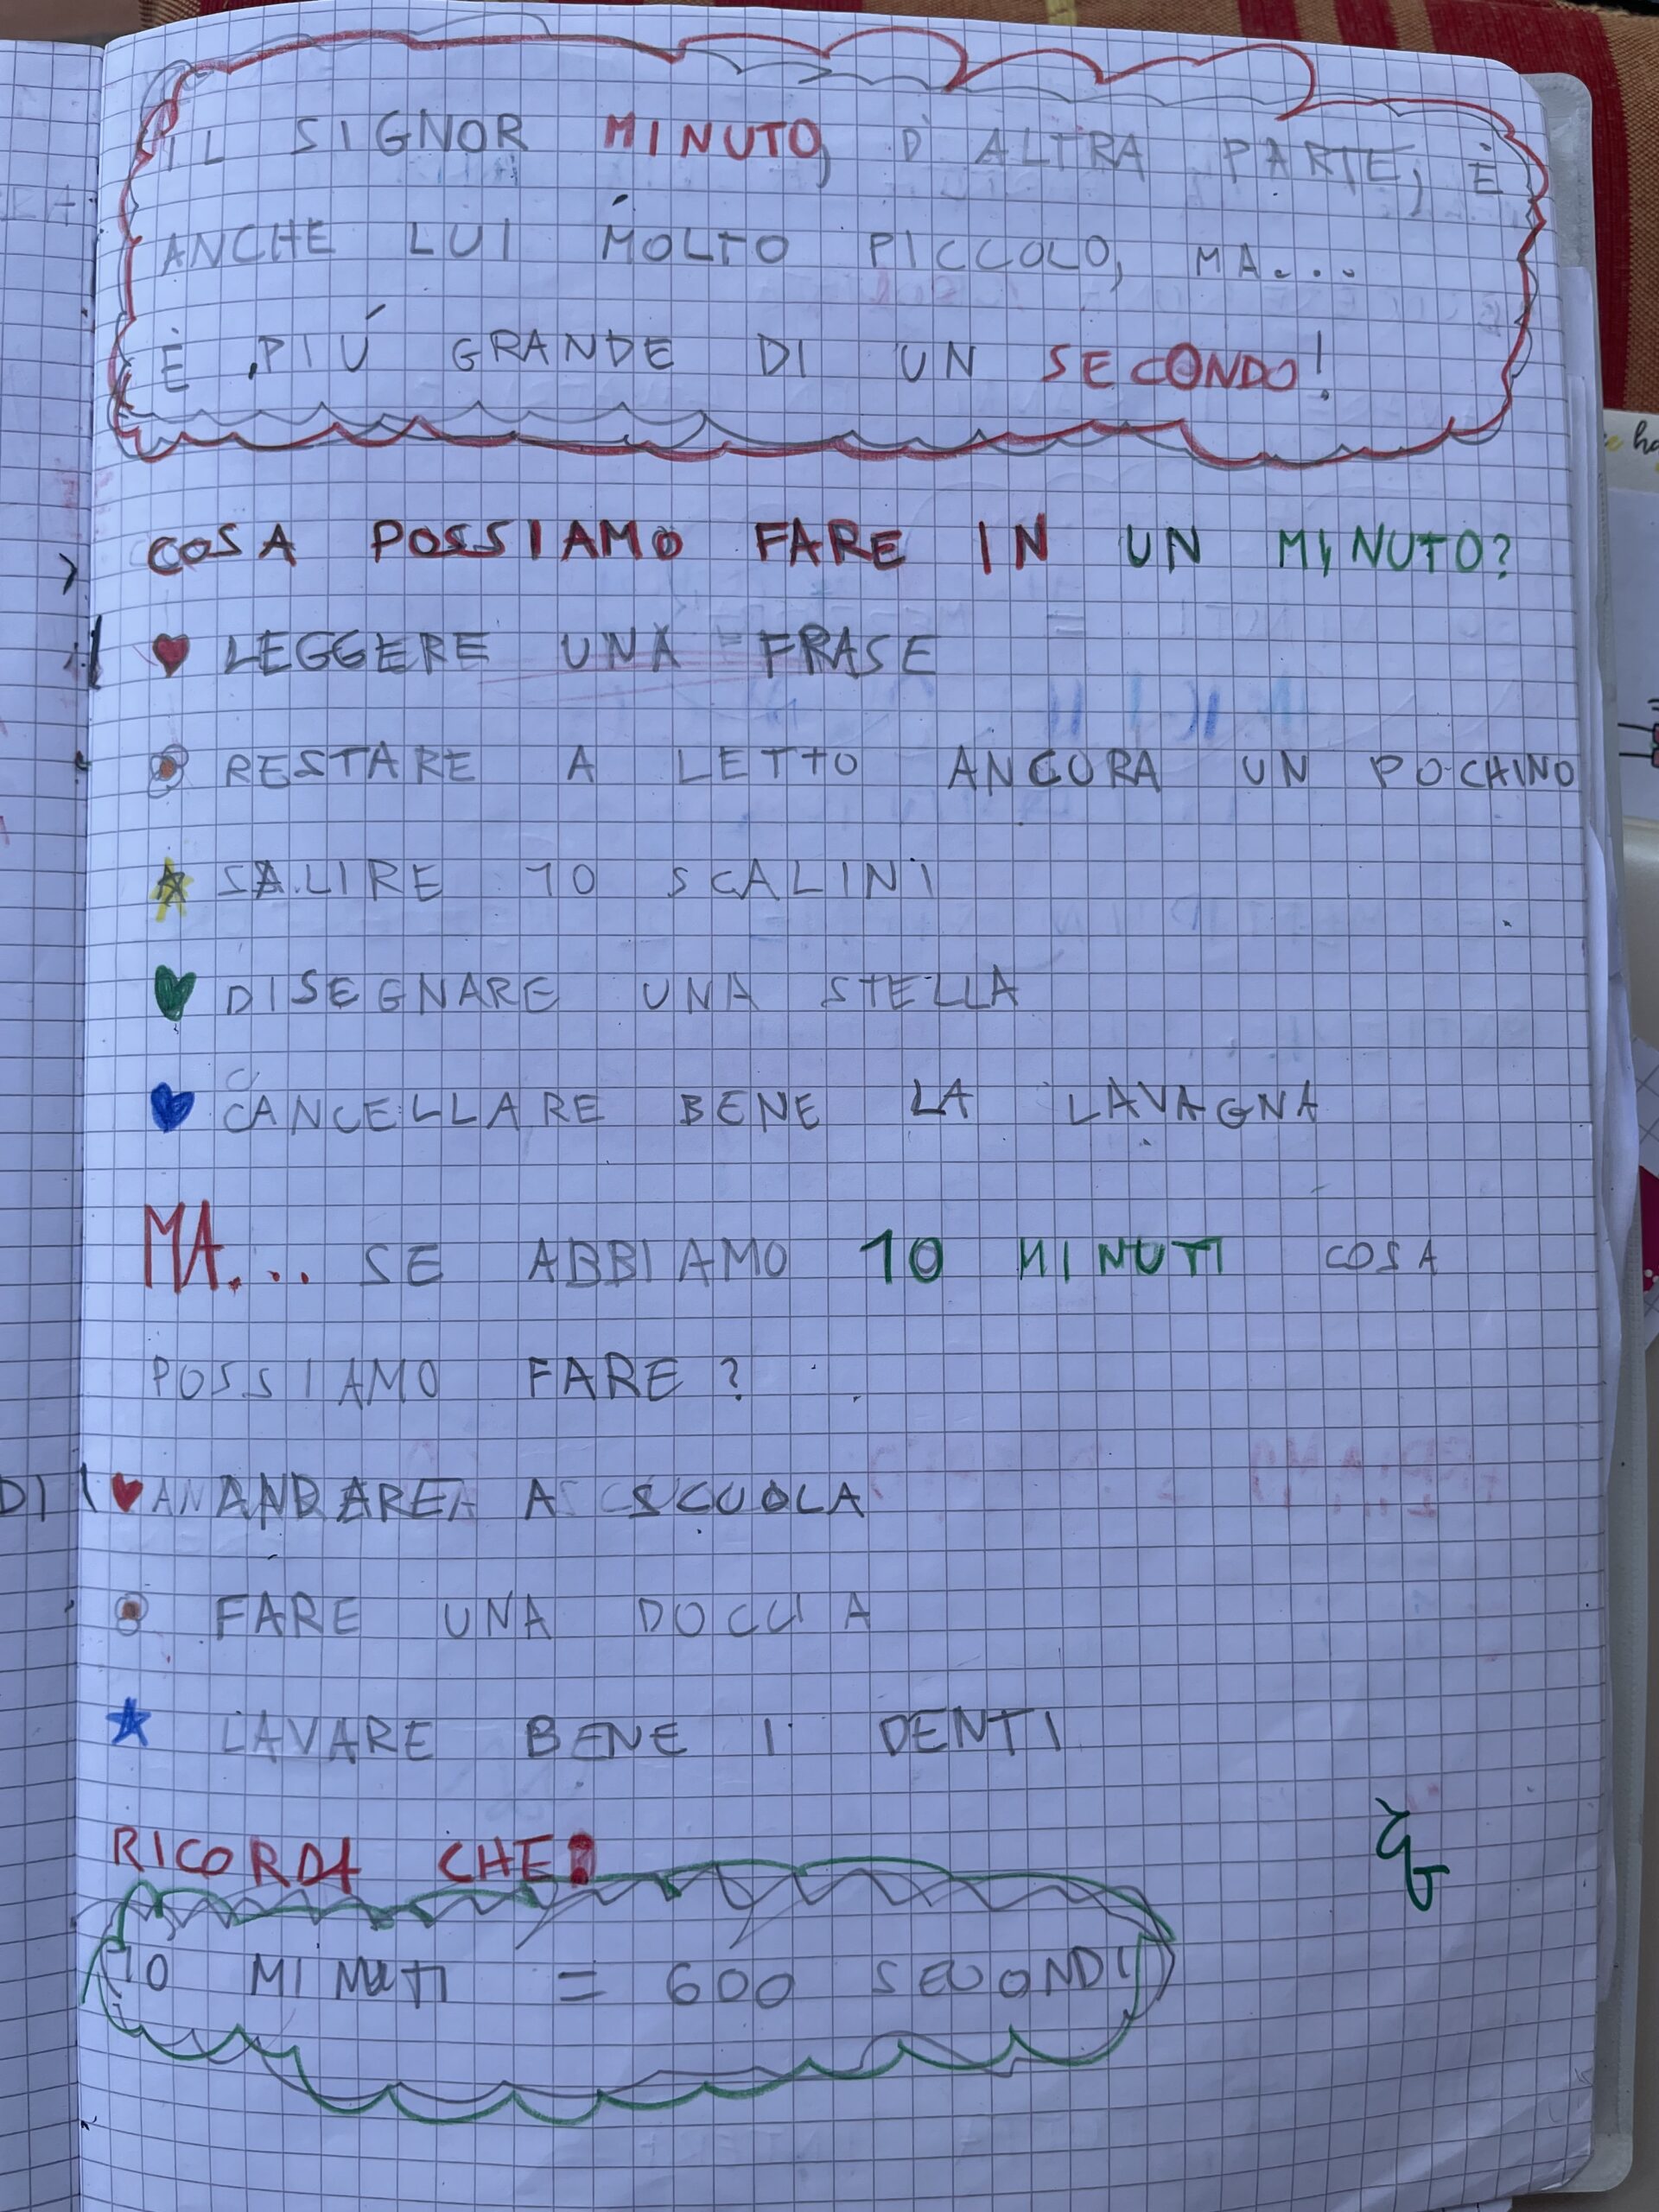 IL SIGNOR MINUTO, D'ALTRA PARTE, È
ANCHE LUI MOLTO PICCOLO, MA...
È PIÚ GRANDE DI UN SECONDO!
COSA POSSIAMO FARE IN UN MINUTO?
LEGGERE UNA FRASE
RESTARE A LETTO ANCORA UN POCHINO
SALIRE 10 SCALINI
DISEGNARE UNA STELLA
CANCELLARE BENE LA LAVAGNA
MA... SE ABBIAMO 10 MINUTI COSA
POSSIAMO FARE?
ANDARE A SCUOLA
FARE UNA DOCCIA
LAVARE BENE I DENTI
RICORDA CHE:
10 MINUTI = 600 SECONDI